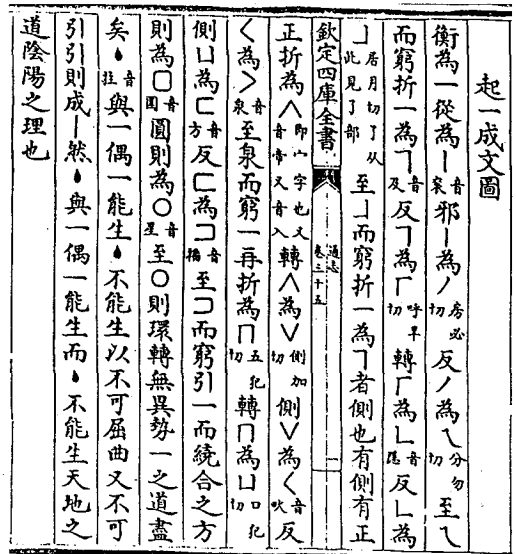 起一成文圖
衡為一從為丨音袞邪丨為丿房必切反丿為乀分勿切至乀
而窮折一為㇕音及反㇕為厂呼旱切轉厂為乚音隱反乚為
亅居月切了从此見了部至亅而窮折一為㇕者側也有側有正
欽定四庫全書 通志卷三十五 一
正折為∧即宀字也又音帝又音入轉∧為∨側加切側∨為<音吠反
<為>音泉至泉而窮一再折為冂五犯切轉冂為凵口犯切
側凵為匚音方反匚為コ音播至コ而窮引一而繞合之方
則為囗音圍圓則為○音星至○則環轉無異勢一之道盡
矣丶音拄與一偶一能生丶不能生以不可屈曲又不可
引引則成丨然丶與一偶一能生而丶不能生天地之
道陰陽之理也